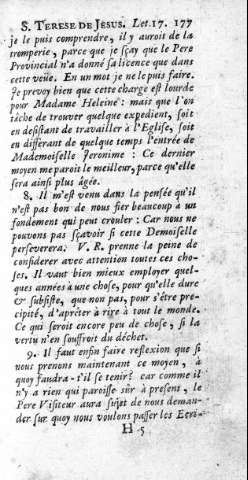 S. TERESE DE JESUS. Let. 17. 177
je le puis comprendre, il y auroit de la
tromperie, parce que je sçay que le Pere
Provincial n'a donné sa licence que dans
cette veüe. En un mot je ne le puis faire.
Je prevoy bien que cette charge est lourde
pour Madame Heleine: mais que l'on
tâche de trouver quelque expedient, soit
en desistant de travailler à l'Eglise, soit
en differant de quelque temps l'entrée de
Mademoiselle Jeronime: Ce dernier
moyen me paroit le meilleur, parce qu'elle
sera ainsi plus âgée.
8. Il m'est venu dans la pensée qu'il
n'est pas bon de nous fier beaucoup à un
fondement qui peut crouler: Car nous ne
pouvons pas sçavoir si cette Demoiselle
perseverera. V. R. prenne la peine de
considerer avec attention toutes ces cho-
ses. Il vaut bien mieux employer quel-
ques années à une chose, pour qu'elle dure
& subsiste, que non pas, pour s'être pre-
cipité, d'aprêter à rire à tout le monde.
Ce qui seroit encore peu de chose, si la
vertu n'en souffroit du déchet.
9. Il faut enfin faire reflexion que si
nous prenons maintenant ce moyen, à
quoy faudra-t'il se tenir? car comme il
n'y a rien qui paroisse sûr à present, le
Pere Visiteur aura sujet de nous deman-
der sur quoy nous voulons passer les Ecri-
H 5